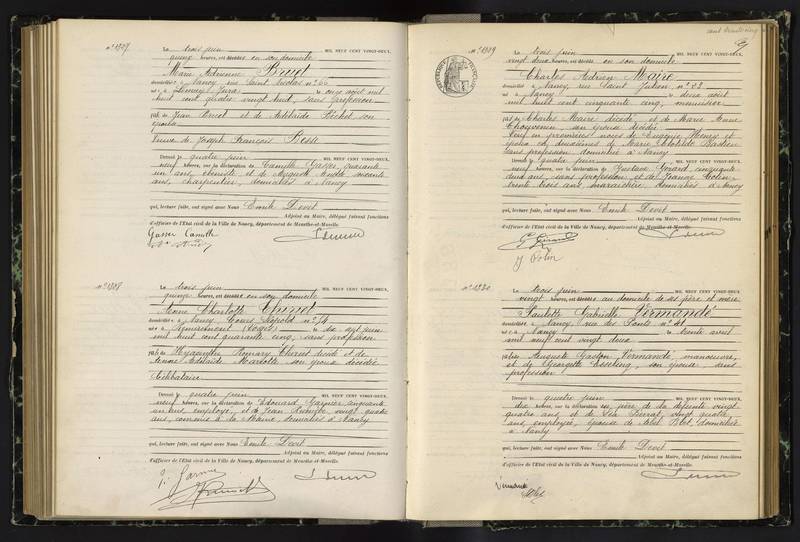 n° 1307
Le trois juin MIL NEUF CENT VINGT-DEUX,
quinze heures, est décédée en son domicile
Marie Adrienne Bruet
domiciliée à Nancy, rue Saint Nicolas n° 66
née à (Jura) le onze août mil
huit cent quatre vingt huit, sans profession
fille de Jean Bruet et de Adélaïde Béchet son
épouse
Veuve de Joseph François Besse
Dressé le quatre juin MIL NEUF CENT VINGT-DEUX,
neuf heures, sur la déclaration de Camille Gasser, quarante
un ans, ébéniste et de Auguste André soixante
ans, charpentier, domiciliés à Nancy
qui, lecture faite, ont signé avec Nous Emile Devit
Adjoint au Maire, délégué faisant fonctions
d'officier de l'Etat civil de la Ville de Nancy, département de Meurthe-et-Moselle.
Gasser Camille
n° 1308
Le trois juin MIL NEUF CENT VINGT-DEUX,
quinze heures, est décédée en son domicile
Anne Charlotte
domiciliée à Nancy, Cours Léopold n° 74
née à Remiremont (Vosges) le dix sept juin
mil huit cent quarante cinq, sans profession
fille de Hyacinthe Romary décédé et de
Adélaïde Charlotte, son épouse décédée
Célibataire
Dressé le quatre juin MIL NEUF CENT VINGT-DEUX,
neuf heures, sur la déclaration de Edouard Garnier cinquante
un ans, employé, et de Jean vingt quatre
ans, commis à la Mairie, domiciliés à Nancy
qui, lecture faite, ont signé avec Nous Emile Devit
Adjoint au Maire, délégué faisant fonctions
d'officier de l'Etat civil de la Ville de Nancy, département de Meurthe-et-Moselle.
n° 1309
Le trois juin MIL NEUF CENT VINGT-DEUX,
vingt deux heures, est décédé en son domicile
Charles Adrien Maire
domicilié à Nancy, rue Saint Julien n° 22
né à Nancy le deux août
mil huit cent cinquante cinq, menuisier
fils de Charles Maire décédé, et de Marie Anne
Chouvenin, son épouse décédée
Veuf en premières noces de Eugénie Henry et
époux en deuxièmes de Marie Clotilde Bastien
sans profession domiciliée à Nancy
Dressé le quatre juin MIL NEUF CENT VINGT-DEUX,
neuf heures, sur la déclaration de Gustave Gérard, cinquante
deux ans, sans profession et de Jeanne Colin
trente trois ans, maraîchère, domiciliés à Nancy
qui, lecture faite, ont signé avec Nous Emile Devit
Adjoint au Maire, délégué faisant fonctions
d'officier de l'Etat civil de la Ville de Nancy, département de Meurthe-et-Moselle.
G Gérard
J Colin
n° 1310
Le trois juin MIL NEUF CENT VINGT-DEUX,
vingt heures, est décédée au domicile de ses père et mère
Paulette Gabrielle Vermandé
domiciliée à Nancy, rue des Ponts n° 41
née à Nancy le trente avril
mil neuf cent vingt deux
fille de Auguste Gaston Vermandé, manoeuvre,
et de Georgette Esseling, son épouse, sans
profession
Dressé le quatre juin MIL NEUF CENT VINGT-DEUX,
dix heures, sur la déclaration du père de la défunte vingt
quatre ans, et de vingt quatre
ans, employée, épouse de Blet, domiciliés
à Nancy
qui, lecture faite, ont signé avec Nous Emile Devit
Adjoint au Maire, délégué faisant fonctions
d'officier de l'Etat civil de la Ville de Nancy, département de Meurthe-et-Moselle.